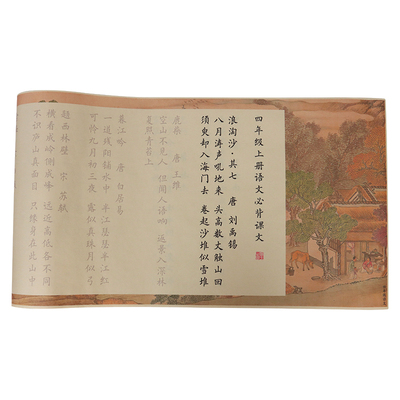 四年级上册语文必背课文
浪淘沙·其七 唐 刘禹锡
八月涛声吼地来 头高数丈触山回
须臾却入海门去 卷起沙堆似雪堆
鹿柴 唐 王维
空山不见人 但闻人语响 返景入深林
复照青苔上
暮江吟 唐 白居易
一道残阳铺水中 半江瑟瑟半江红
可怜九月初三夜 露似真珠月似弓
题西林壁 宋 苏轼
横看成岭侧成峰 远近高低各不同
不识庐山真面目 只缘身在此山中